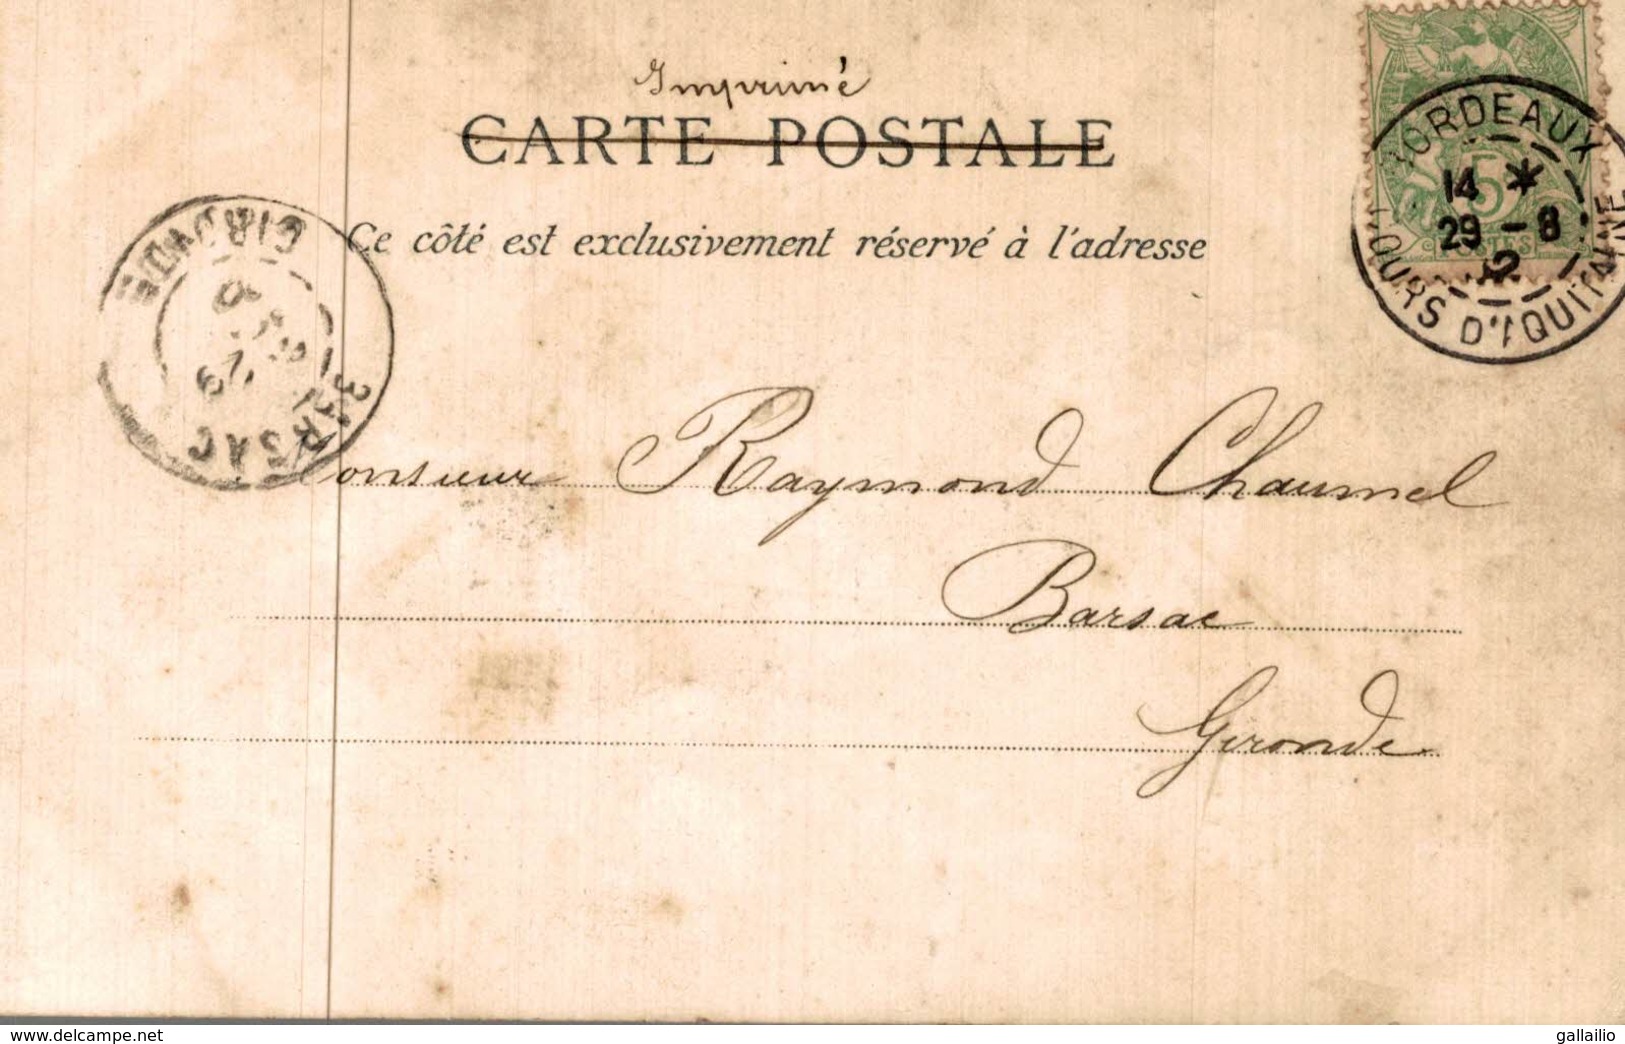 Imprimé
CARTE POSTALE
Ce côté est exclusivement réservé à l'adresse
BORDEAUX
14 *
29 - 8
02
COURS D'AQUITAINE
5
POSTES
GIRONDE
29
BARSAC
Monsieur Raymond Chaumel
Barsac
Gironde
www.delcampe.net
gallailio